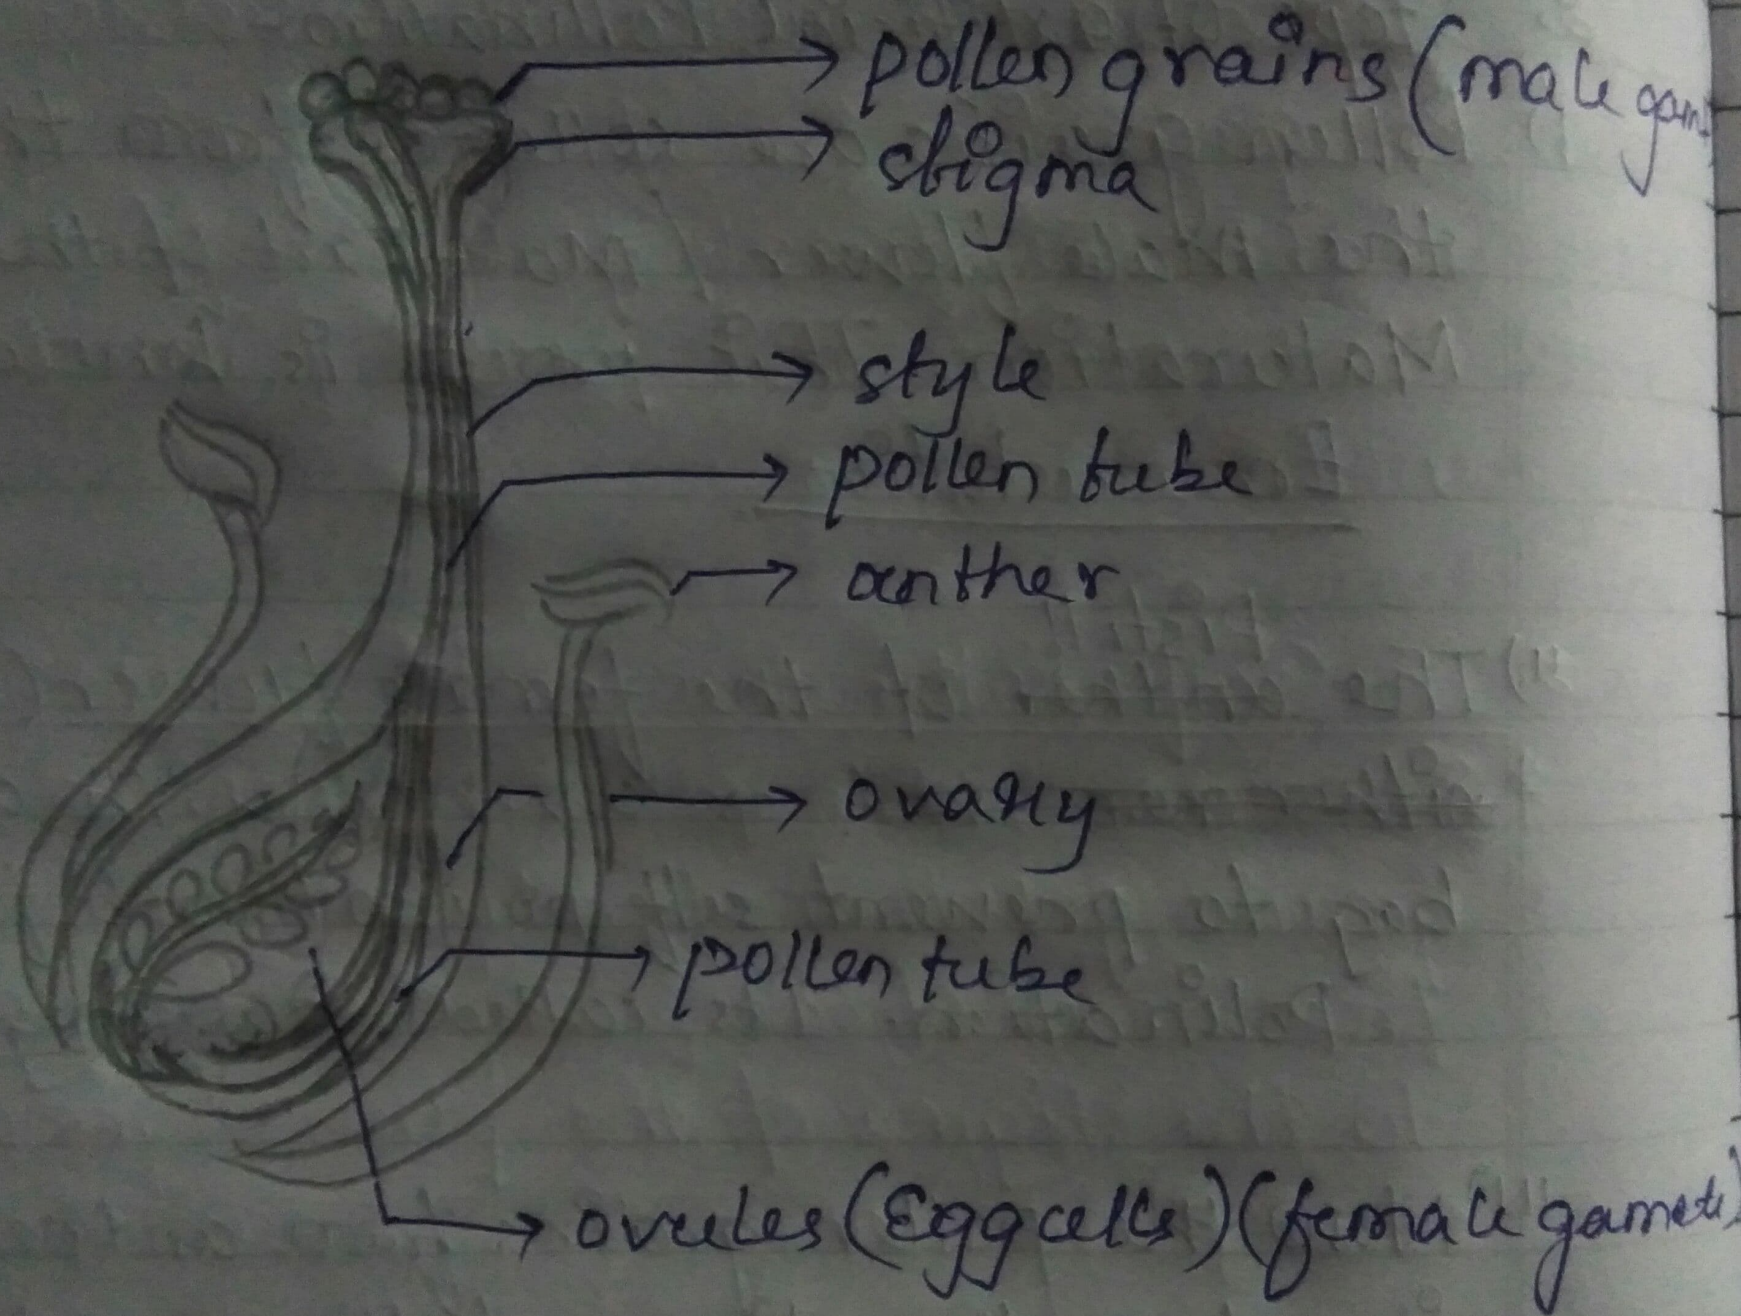 pollen grains (male gam
stigma
style
pollen tube
anther
ovary
pollen tube
ovules (Egg cells) (female gamete)